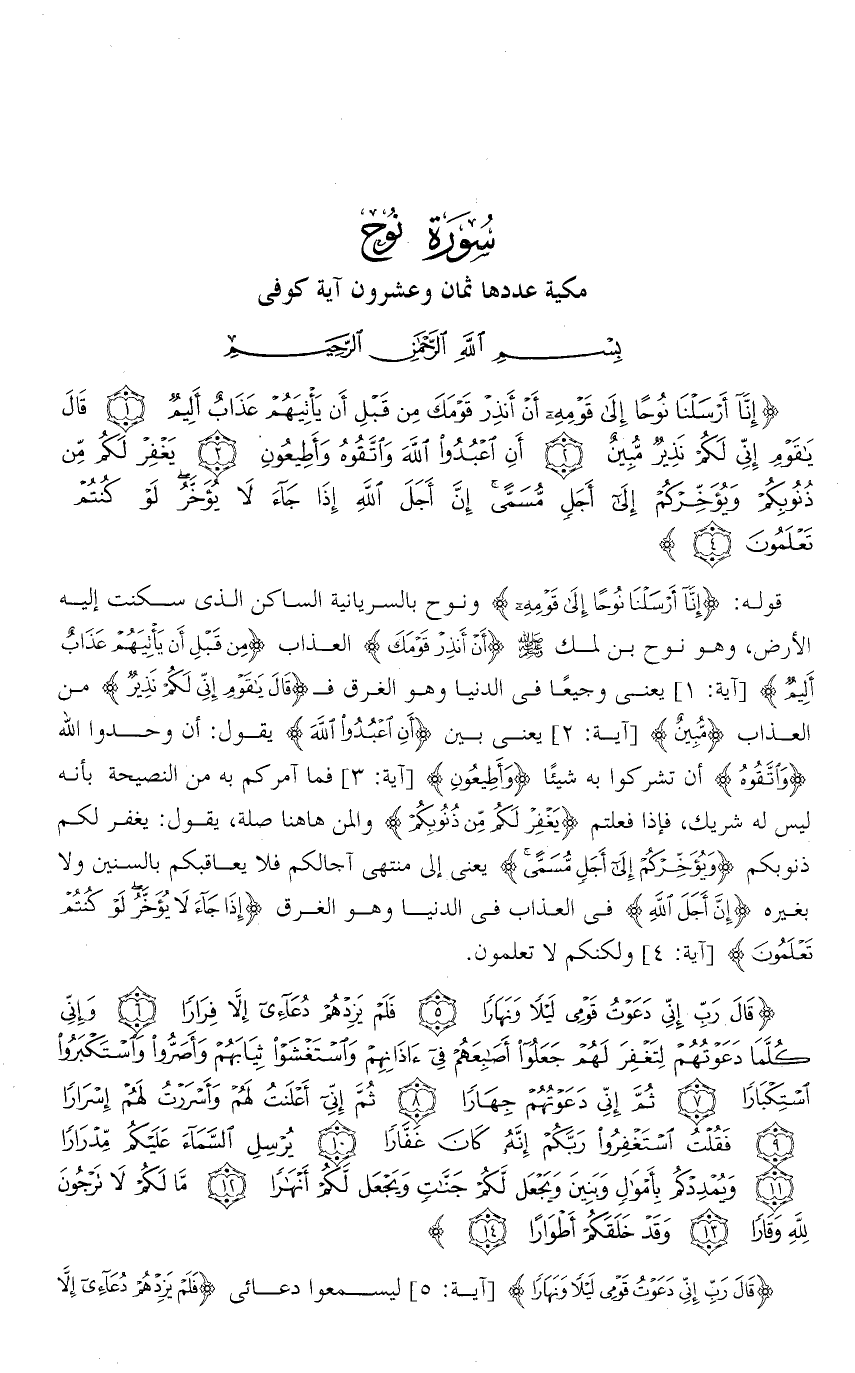 سُورَةُ نُوحٍ
مكية عددها ثمان وعشرون آية كوفى
بِسْمِ ٱللَّهِ ٱلرَّحْمَٰنِ ٱلرَّحِيمِ
﴿ إِنَّآ أَرْسَلْنَا نُوحًا إِلَىٰ قَوْمِهِۦٓ أَنْ أَنذِرْ قَوْمَكَ مِن قَبْلِ أَن يَأْتِيَهُمْ عَذَابٌ أَلِيمٌ ١ قَالَ
يَٰقَوْمِ إِنِّى لَكُمْ نَذِيرٌ مُّبِينٌ ٢ أَنِ ٱعْبُدُوا۟ ٱللَّهَ وَٱتَّقُوهُ وَأَطِيعُونِ ٣ يَغْفِرْ لَكُم مِّن
ذُنُوبِكُمْ وَيُؤَخِّرْكُمْ إِلَىٰٓ أَجَلٍ مُّسَمًّى ۚ إِنَّ أَجَلَ ٱللَّهِ إِذَا جَآءَ لَا يُؤَخَّرُ ۖ لَوْ كُنتُمْ
تَعْلَمُونَ ٤ ﴾
قوله: ﴿إِنَّآ أَرْسَلْنَا نُوحًا إِلَىٰ قَوْمِهِۦٓ﴾ ونوح بالسريانية الساكن الذى سكنت إليه
الأرض، وهو نوح بن لمك ﷺ ﴿أَنْ أَنذِرْ قَوْمَكَ﴾ العذاب ﴿مِن قَبْلِ أَن يَأْتِيَهُمْ عَذَابٌ
أَلِيمٌ﴾ [آية: ١] يعنى وجيعًا فى الدنيا وهو الغرق فـ﴿قَالَ يَٰقَوْمِ إِنِّى لَكُمْ نَذِيرٌ﴾ من
العذاب ﴿مُّبِينٌ﴾ [آية: ٢] يعنى بين ﴿أَنِ ٱعْبُدُوا۟ ٱللَّهَ﴾ يقول: أن وحدوا الله
﴿وَٱتَّقُوهُ﴾ أن تشركوا به شيئًا ﴿وَأَطِيعُونِ﴾ [آية: ٣] فما آمركم به من النصيحة بأنه
ليس له شريك، فإذا فعلتم ﴿يَغْفِرْ لَكُم مِّن ذُنُوبِكُمْ﴾ والمن هاهنا صلة، يقول: يغفر لكم
ذنوبكم ﴿وَيُؤَخِّرْكُمْ إِلَىٰٓ أَجَلٍ مُّسَمًّى ۚ﴾ يعنى إلى منتهى آجالكم فلا يعاقبكم بالسنين ولا
بغيره ﴿إِنَّ أَجَلَ ٱللَّهِ﴾ فى العذاب فى الدنيا وهو الغرق ﴿إِذَا جَآءَ لَا يُؤَخَّرُ ۖ لَوْ كُنتُمْ
تَعْلَمُونَ﴾ [آية: ٤] ولكنكم لا تعلمون.
﴿ قَالَ رَبِّ إِنِّى دَعَوْتُ قَوْمِى لَيْلًا وَنَهَارًا ٥ فَلَمْ يَزِدْهُمْ دُعَآءِىٓ إِلَّا فِرَارًا ٦ وَإِنِّى
كُلَّمَا دَعَوْتُهُمْ لِتَغْفِرَ لَهُمْ جَعَلُوٓا۟ أَصَٰبِعَهُمْ فِىٓ ءَاذَانِهِمْ وَٱسْتَغْشَوْا۟ ثِيَابَهُمْ وَأَصَرُّوا۟ وَٱسْتَكْبَرُوا۟
ٱسْتِكْبَارًا ٧ ثُمَّ إِنِّى دَعَوْتُهُمْ جِهَارًا ٨ ثُمَّ إِنِّىٓ أَعْلَنتُ لَهُمْ وَأَسْرَرْتُ لَهُمْ إِسْرَارًا
٩ فَقُلْتُ ٱسْتَغْفِرُوا۟ رَبَّكُمْ إِنَّهُۥ كَانَ غَفَّارًا ١٠ يُرْسِلِ ٱلسَّمَآءَ عَلَيْكُم مِّدْرَارًا
١١ وَيُمْدِدْكُم بِأَمْوَٰلٍ وَبَنِينَ وَيَجْعَل لَّكُمْ جَنَّٰتٍ وَيَجْعَل لَّكُمْ أَنْهَٰرًا ١٢ مَّا لَكُمْ لَا تَرْجُونَ
لِلَّهِ وَقَارًا ١٣ وَقَدْ خَلَقَكُمْ أَطْوَارًا ١٤ ﴾
﴿قَالَ رَبِّ إِنِّى دَعَوْتُ قَوْمِى لَيْلًا وَنَهَارًا﴾ [آية: ٥] ليسمعوا دعائى ﴿فَلَمْ يَزِدْهُمْ دُعَآءِىٓ إِلَّا